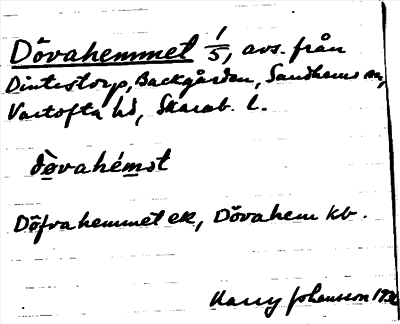 Dövahemmet 1/5, avs. från
Dintestorp, Backgården, Sandhems sn,
Vartofta hd, Skarab. l.
dòvahémət
Döfvahemmet ek, Dövahem kb.
Harry Johansson